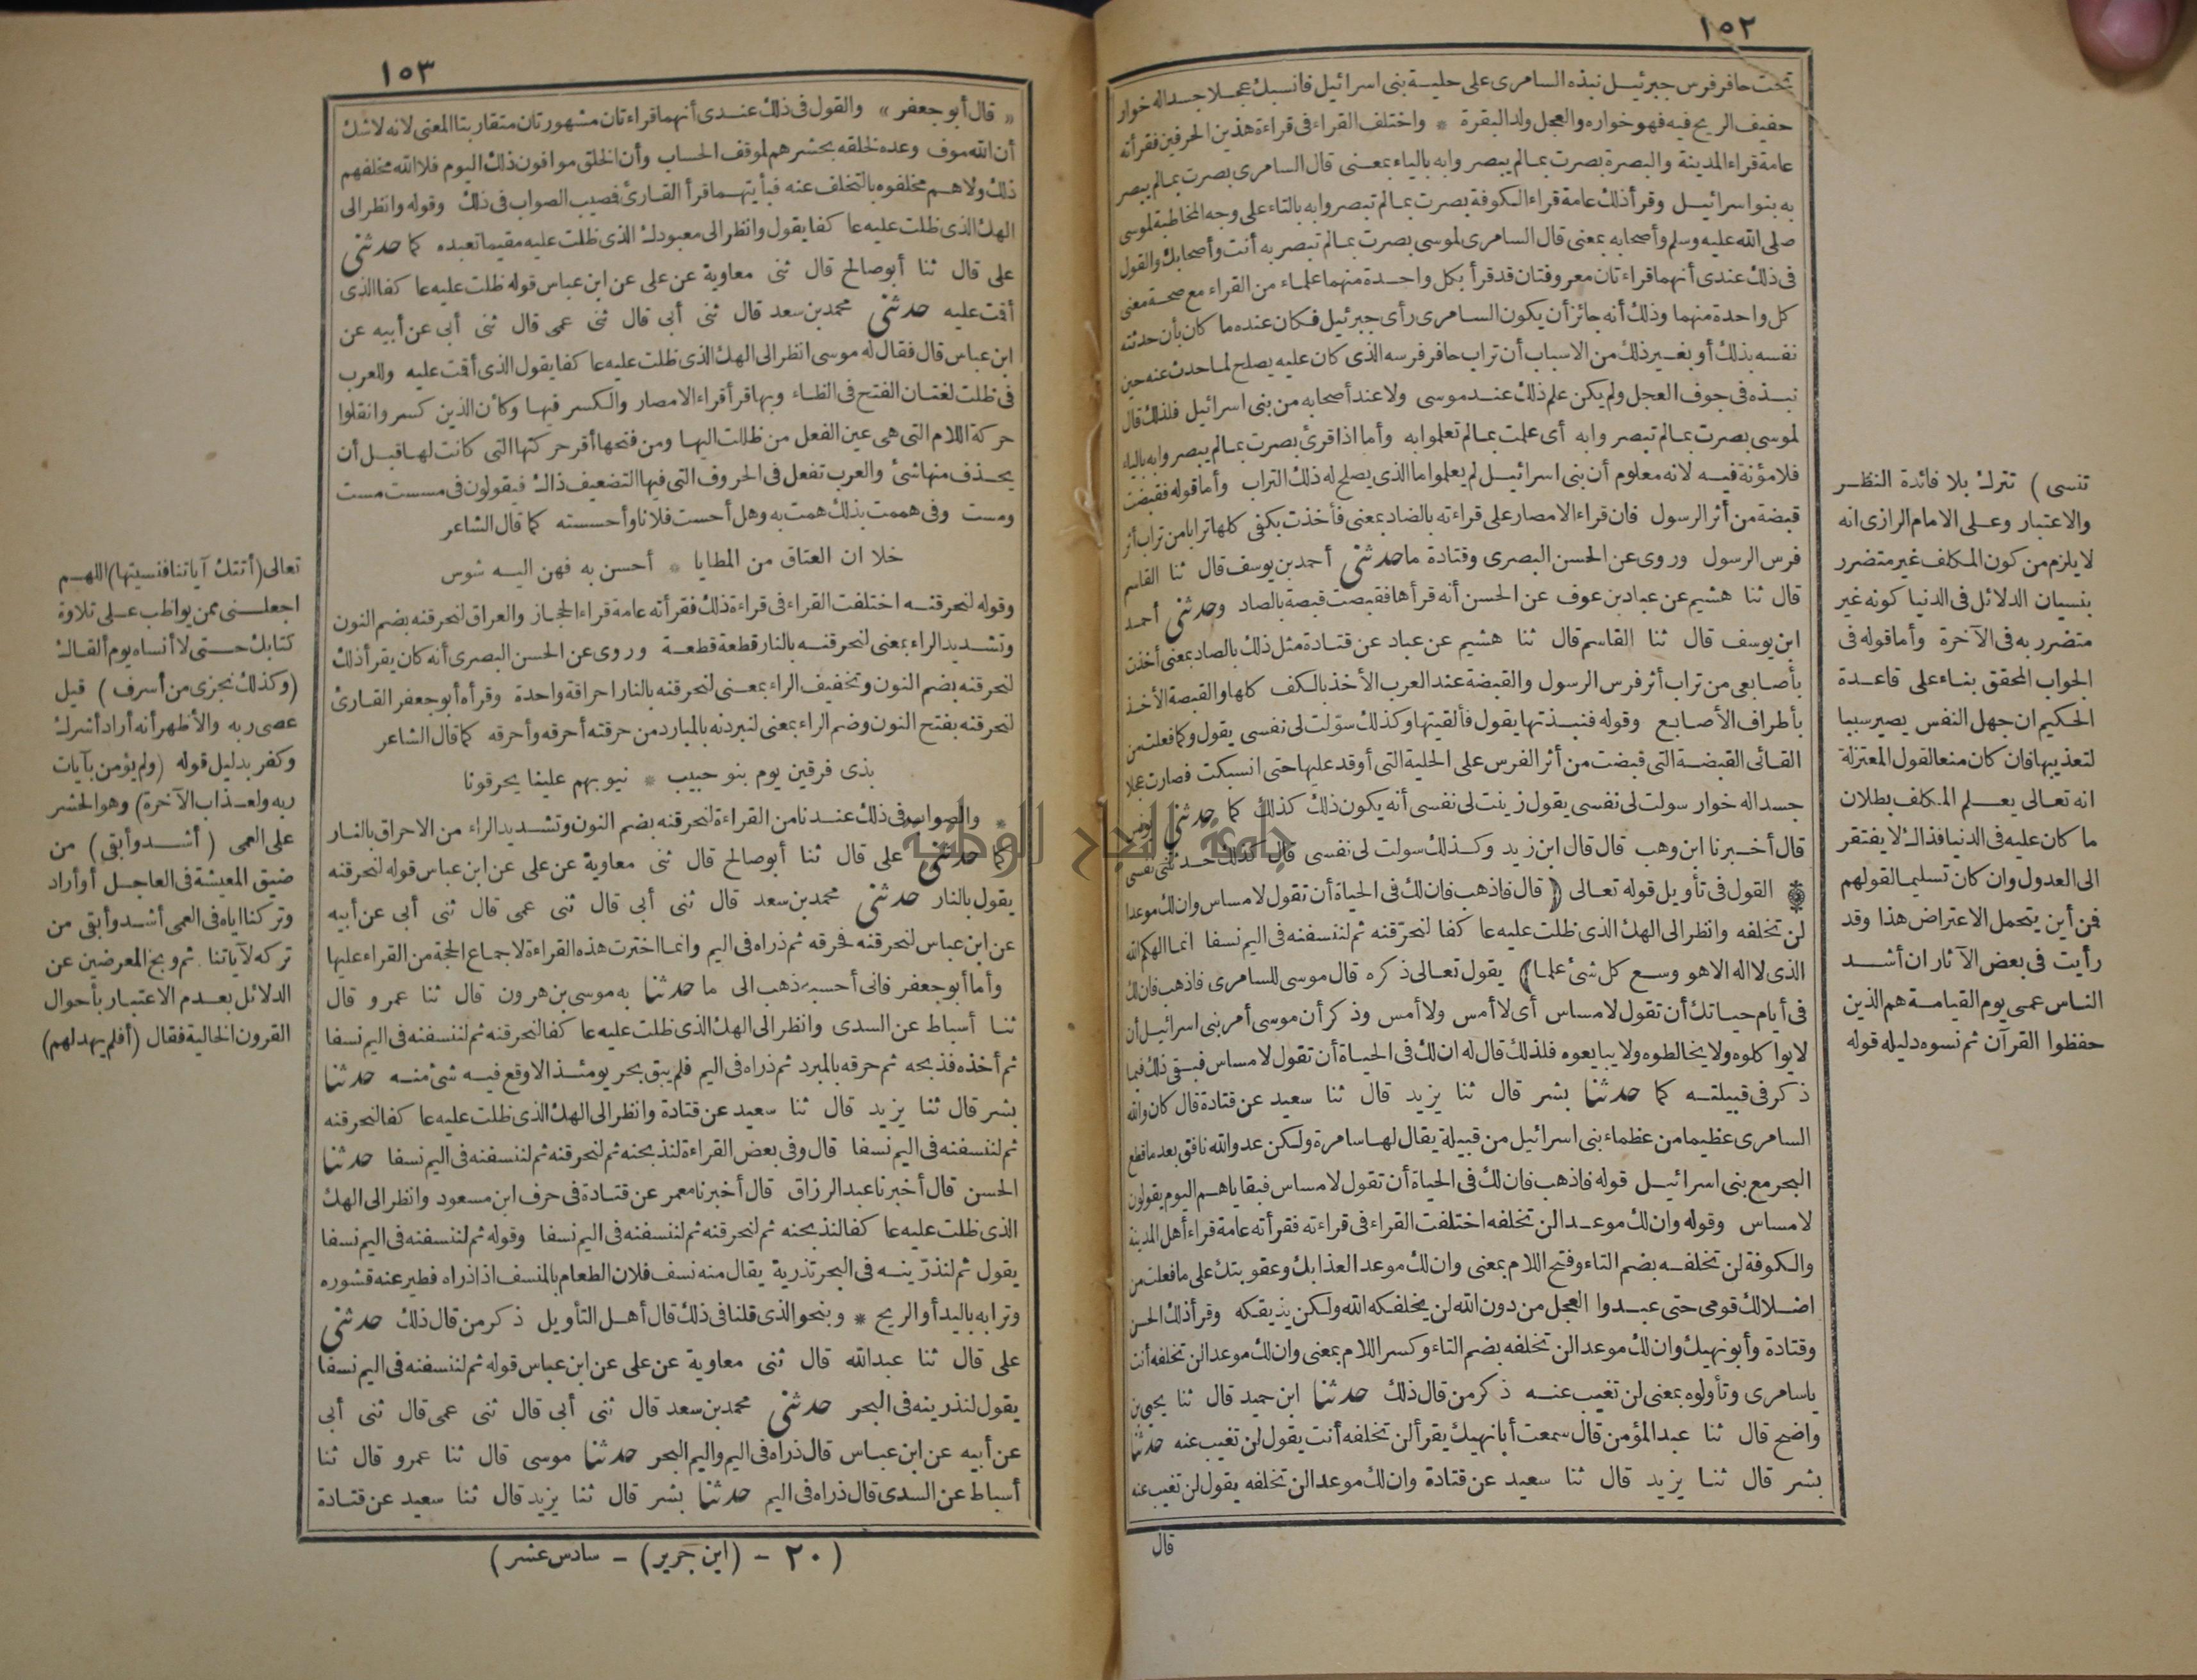 ١٥٢
تحت حافر فرس جبرئيل نبذه السامرى على حلية بنى اسرائيل فانسبك عجلا جسدا له خوار
حفيف الريح فيه فهو خواره والعجل ولد البقرة * واختلف القراء فى قراءة هذين الحرفين فقرأته
عامة قراء المدينة والبصرة بصرت بمالم يبصروا به بالياء بمعنى قال السامرى بصرت بمالم يبصر
به بنو اسرائيل وقرأ ذلك عامة قراء الكوفة بصرت بمالم تبصروا به بالتاء على وجه المخاطبة لموسى
صلى الله عليه وسلم وأصحابه بمعنى قال السامرى لموسى بصرت بمالم تبصر به أنت وأصحابك والقول
فى ذلك عندى أنهما قراءتان معروفتان قد قرأ بكل واحدة منهما علماء من القراء مع صحة معنى
كل واحدة منهما وذلك أنه جائز أن يكون السامرى رأى جبرئيل فكان عنده ما كان بأن حدثته
نفسه بذلك أو بغير ذلك من الاسباب أن تراب حافر فرسه الذى كان عليه يصلح لما حدث عنه حين
نبذه فى جوف العجل ولم يكن علم ذلك عند موسى ولا عند أصحابه من بنى اسرائيل فلذلك قال
لموسى بصرت بمالم تبصروا به أى علمت بمالم تعلموا به وأما اذا قرئ بصرت بمالم يبصروا به بالياء
فلا مؤنة فيه لانه معلوم أن بنى اسرائيل لم يعلموا ما الذى يصلح له ذلك التراب وأما قوله فقبضت
قبضة من أثر الرسول فان قراء الامصار على قراءته بالضاد بمعنى فأخذت بكفى كلها ترابا من تراب أثر
فرس الرسول وروى عن الحسن البصرى وقتادة ما حدثنى أحمد بن يوسف قال ثنا القاسم
قال ثنا هشيم عن عباد بن عوف عن الحسن أنه قرأها فقبصت قبصة بالصاد وحدثنى أحمد
ابن يوسف قال ثنا القاسم قال ثنا هشيم عن عباد عن قتادة مثل ذلك بالصاد بمعنى أخذت
بأصابعى من تراب أثر فرس الرسول والقبضة عند العرب الأخذ بالكف كلها والقبصة الأخذ
بأطراف الأصابع وقوله فنبذتها يقول فألقيتها وكذلك سوّلت لى نفسى يقول وكما فعلت من
القائى القبضة التى قبضت من أثر الفرس على الحلية التى أوقد عليها حتى انسبكت فصارت عجلا
جسدا له خوار سولت لى نفسى يقول زينت لى نفسى أنه يكون ذلك كذلك كما حدثنى يونس
قال أخبرنا ابن وهب قال قال ابن زيد وكذلك سولت لى نفسى قال كذلك حدثتنى نفسى
القول فى تأويل قوله تعالى ﴿ قال فاذهب فان لك فى الحياة أن تقول لا مساس وان لك موعدا
لن تخلفه وانظر الى الهك الذى ظلت عليه عاكفا لنحرّقنه ثم لننسفنه فى اليم نسفا انما الهكم الله
الذى لا اله الا هو وسع كل شئ علما ﴾ يقول تعالى ذكره قال موسى للسامرى فاذهب فان لك
فى أيام حياتك أن تقول لا مساس أى لا أمس ولا أمس وذكر أن موسى أمر بنى اسرائيل أن
لا يواكلوه ولا يخالطوه ولا يبايعوه فلذلك قال له ان لك فى الحياة أن تقول لا مساس فبقى ذلك فيما
ذكر فى قبيلته كما حدثنا بشر قال ثنا يزيد قال ثنا سعيد عن قتادة قال كان والله
السامرى عظيما من عظماء بنى اسرائيل من قبيلة يقال لها سامرة ولكن عدو الله نافق بعد ما قطع
البحر مع بنى اسرائيل قوله فاذهب فان لك فى الحياة أن تقول لا مساس فبقاياهم اليوم يقولون
لا مساس وقوله وان لك موعدا لن تخلفه اختلفت القراء فى قراءته فقرأته عامة قراء أهل المدينة
والكوفة لن تخلفه بضم التاء وفتح اللام بمعنى وان لك موعدا لعذابك وعقوبتك على ما فعلت من
اضلالك قومى حتى عبدوا العجل من دون الله لن يخلفكه الله ولكن يذيقكه وقرأ ذلك الحسن
وقتادة وأبو نهيك وان لك موعدا لن تخلفه بضم التاء وكسر اللام بمعنى وان لك موعدا لن تخلفه أنت
يا سامرى وتأولوه بمعنى لن تغيب عنه ذكر من قال ذلك حدثنا ابن حميد قال ثنا يحيى بن
واضح قال ثنا عبد المؤمن قال سمعت أبا نهيك يقرأ لن تخلفه أنت يقول لن تغيب عنه حدثنا
بشر قال ثنا يزيد قال ثنا سعيد عن قتادة وان لك موعدا لن تخلفه يقول لن تغيب عنه
قال
تنسى) تترك بلا فائدة النظر
والاعتبار وعلى الامام الرازى انه
لا يلزم من كون المكلف غير متضرر
بنسيان الدلائل فى الدنيا كونه غير
متضرر به فى الآخرة وأما قوله فى
الجواب المحقق بناء على قاعدة
الحكيم ان جهل النفس يصير سببا
لتعذيبها فان كان منعا لقول المعتزلة
انه تعالى يعلم المكلف بطلان
ما كان عليه فى الدنيا فذاك لا يفتقر
الى العدول وان كان تسليما لقولهم
فمن أين يتحمل الاعتراض هذا وقد
رأيت فى بعض الآثار ان أشد
الناس عمى يوم القيامة هم الذين
حفظوا القرآن ثم نسوه دليله قوله
١٥٣
« قال أبو جعفر » والقول فى ذلك عندى أنهما قراءتان مشهورتان متقاربتا المعنى لانه لا شك
أن الله موف وعده لخلقه بحشرهم لموقف الحساب وأن الخلق موافون ذلك اليوم فلا الله مخلفهم
ذلك ولا هم مخلفوه بالتخلف عنه فبأيتهما قرأ القارئ فصيب الصواب فى ذلك وقوله وانظر الى
الهك الذى ظلت عليه عاكفا يقول وانظر الى معبودك الذى ظلت عليه مقيما تعبده كما حدثنى
على قال ثنا أبو صالح قال ثنى معاوية عن على عن ابن عباس قوله ظلت عليه عاكفا الذى
أقمت عليه حدثنى محمد بن سعد قال ثنى أبى قال ثنى عمى قال ثنى أبى عن أبيه عن
ابن عباس قال فقال له موسى انظر الى الهك الذى ظلت عليه عاكفا يقول الذى أقمت عليه وللعرب
فى ظلت لغتان الفتح فى الظاء وبها قرأ قراء الامصار والكسر فيها وكأن الذين كسروا نقلوا
حركة اللام التى هى عين الفعل من ظللت اليها ومن فتحها أقر حركتها التى كانت لها قبل أن
يحذف منها شئ والعرب تفعل فى الحروف التى فيها التضعيف ذاك فيقولون فى مسست مست
ومست وفى هممت بذلك همت به وهل أحست فلانا وأحسسته كما قال الشاعر
خلا ان العتاق من المطايا * أحسن به فهن اليه شوس
وقوله لنحرقنه اختلفت القراء فى قراءة ذلك فقرأته عامة قراء الحجاز والعراق لنحرقنه بضم النون
وتشديد الراء بمعنى لنحرقنه بالنار قطعة قطعة وروى عن الحسن البصرى أنه كان يقرأ ذلك
لنحرقنه بضم النون وتخفيف الراء بمعنى لنحرقنه بالنار احراقة واحدة وقرأه أبو جعفر القارئ
لنحرقنه بفتح النون وضم الراء بمعنى لنبردنه بالمبارد من حرقته أحرقه وأحرقه كما قال الشاعر
بذى فرقين يوم بنو حبيب * نيوبهم علينا يحرقونا
* والصواب فى ذلك عندنا من القراءة لنحرقنه بضم النون وتشديد الراء من الاحراق بالنار
كما حدثنى على قال ثنا أبو صالح قال ثنى معاوية عن على عن ابن عباس قوله لنحرقنه
يقول بالنار حدثنى محمد بن سعد قال ثنى أبى قال ثنى عمى قال ثنى أبى عن أبيه
عن ابن عباس لنحرقنه فحرقه ثم ذراه فى اليم وانما اخترت هذه القراءة لاجماع الحجة من القراء عليها
وأما أبو جعفر فانى أحسبه ذهب الى ما حدثنا به موسى بن هرون قال ثنا عمرو قال
ثنا أسباط عن السدى وانظر الى الهك الذى ظلت عليه عاكفا لنحرقنه ثم لننسفنه فى اليم نسفا
ثم أخذه فذبحه ثم حرقه بالمبرد ثم ذراه فى اليم فلم يبق بحر يومئذ الا وقع فيه شئ منه حدثنا
بشر قال ثنا يزيد قال ثنا سعيد عن قتادة وانظر الى الهك الذى ظلت عليه عاكفا لنحرقنه
ثم لننسفنه فى اليم نسفا قال وفى بعض القراءة لنذبحنه ثم لنحرقنه ثم لننسفنه فى اليم نسفا حدثنا
الحسن قال أخبرنا عبد الرزاق قال أخبرنا معمر عن قتادة فى حرف ابن مسعود وانظر الى الهك
الذى ظلت عليه عاكفا لنذبحنه ثم لنحرقنه ثم لننسفنه فى اليم نسفا وقوله ثم لننسفنه فى اليم نسفا
يقول ثم لنذرّينه فى البحر تذرية يقال منه نسف فلان الطعام بالمنسف اذا ذراه فطير عنه قشوره
وترابه باليد أو الريح * وبنحو الذى قلنا فى ذلك قال أهل التأويل ذكر من قال ذلك حدثنى
على قال ثنا عبد الله قال ثنى معاوية عن على عن ابن عباس قوله ثم لننسفنه فى اليم نسفا
يقول لنذرينه فى البحر حدثنى محمد بن سعد قال ثنى أبى قال ثنى عمى قال ثنى أبى
عن أبيه عن ابن عباس قال ذراه فى اليم واليم البحر حدثنا موسى قال ثنا عمرو قال ثنا
أسباط عن السدى قال ذراه فى اليم حدثنا بشر قال ثنا يزيد قال ثنا سعيد عن قتادة
(٢٠ - (ابن جرير) - سادس عشر)
تعالى (أتتك آياتنا فنسيتها) اللهم
اجعلنى ممن يواظب على تلاوة
كتابك حتى لا أنساه يوم ألقاك
(وكذلك نجزى من أسرف) قيل
عصى ربه والأظهر أنه أراد أشرك
وكفر بدليل قوله (ولم يؤمن بآيات
ربه ولعذاب الآخرة) وهو الحشر
على العمى (أشد وأبقى) من
ضيق المعيشة فى العاجل أو أراد
وتركنا اياه فى العمى أشد وأبقى من
تركه لآياتنا ثم وبخ المعرضين عن
الدلائل بعدم الاعتبار بأحوال
القرون الخالية فقال (أفلم يهد لهم)
جامعة النجاح الوطنية